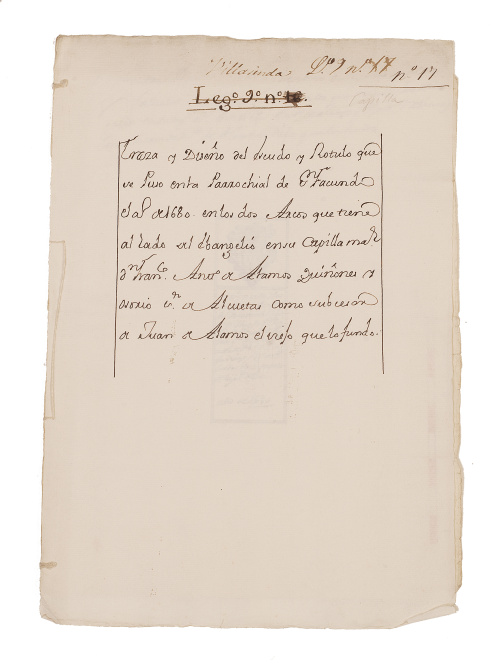 Villasinda L.º 9 n.º 17 n.º 17
Leg.º 9.º n.º
Capilla
Traza y Diseño del Escudo y Rotulo que
se Puso en la Parrochial de Sn. Facundo
el aº de 1680. en los dos Arcos que tiene
al lado del Evangelio en su Capilla maor
Dn. Fran.co Anto. de Llamos Quiñones y
osorio de como subcesor
de Juan de Llamos el viejo que la fundo.